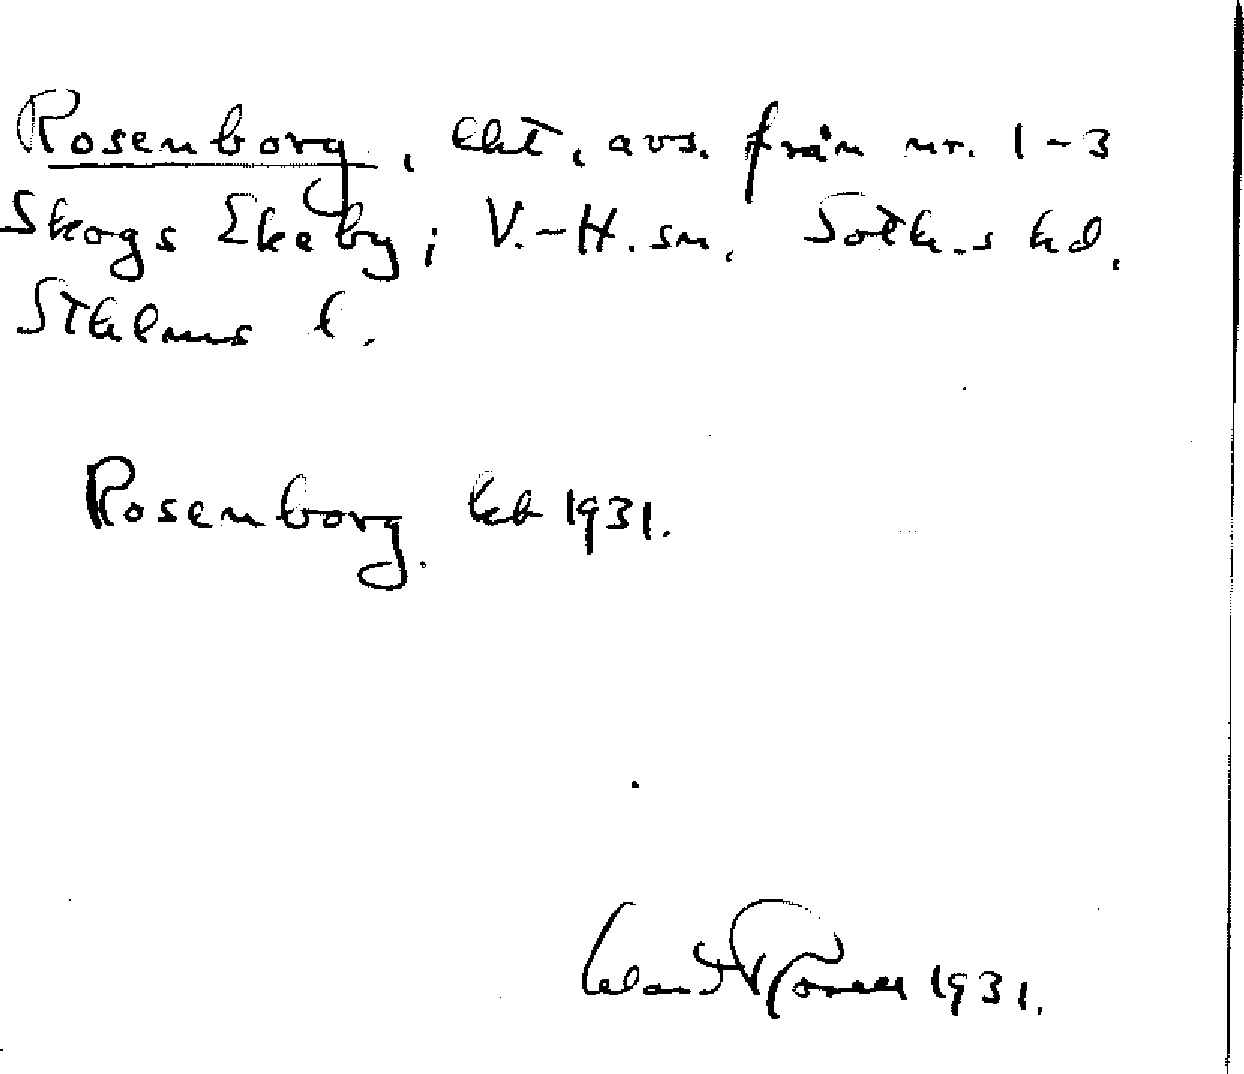 Rosenborg, lht, avs. från nr. 1-3
Skogs Ekeby, i V.-H. sn. Soth.s hd.
Sthlms l.
Rosenborg. kb 1931.
1931.